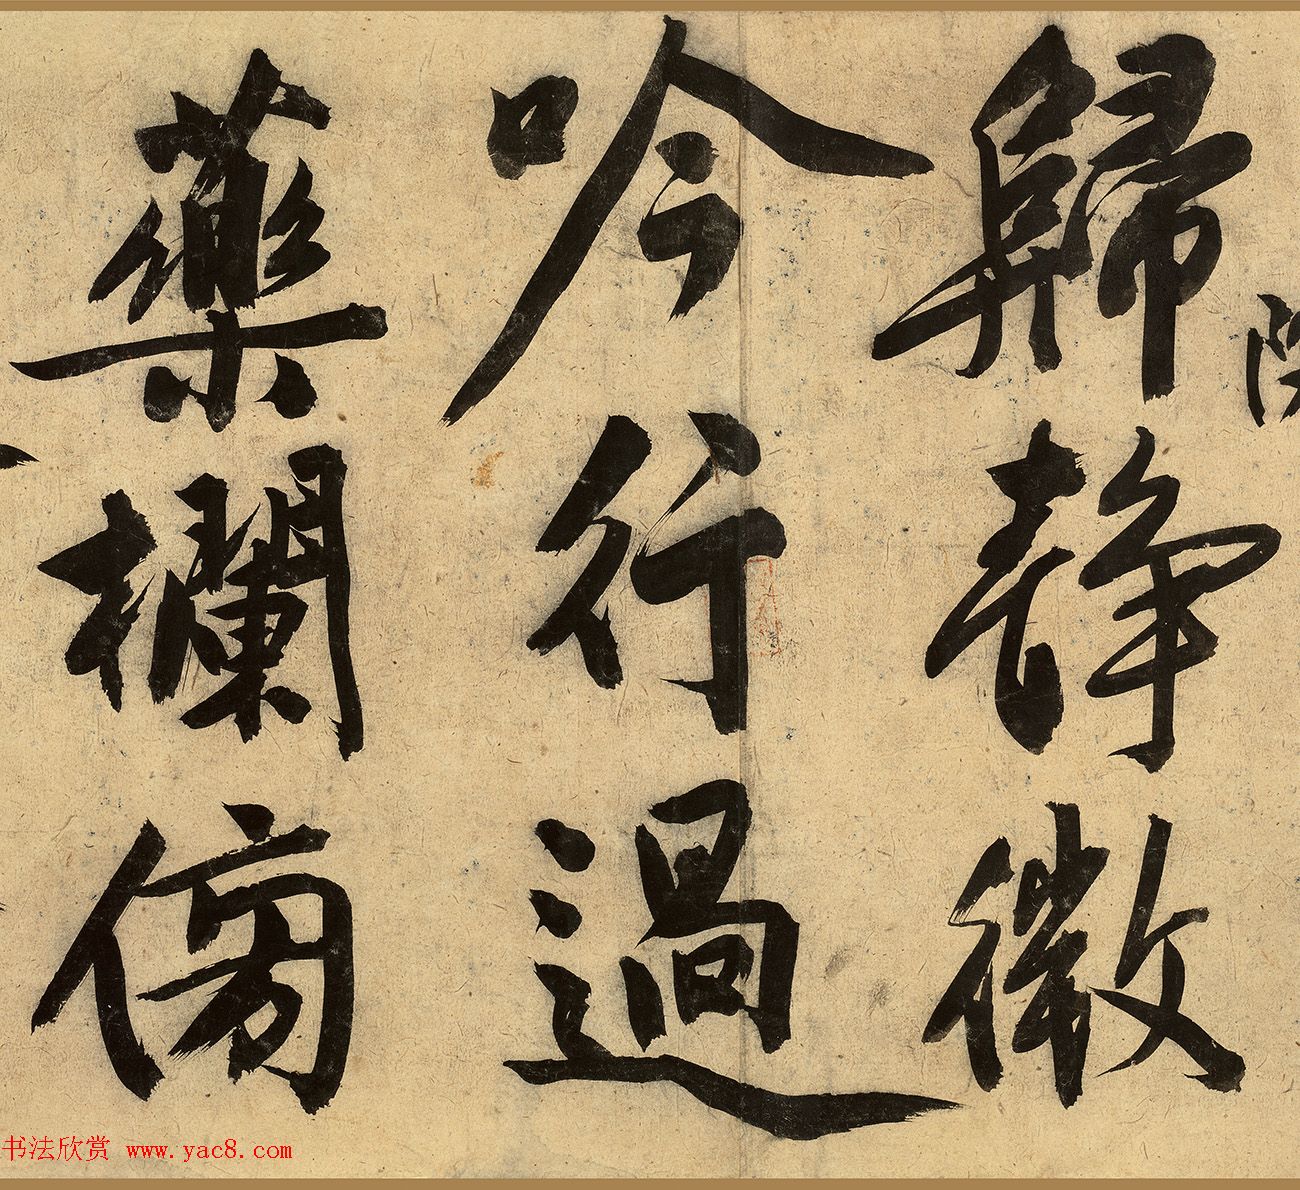 歸靜微
吟行過
藥欄傍
书法欣赏 www.yac8.com